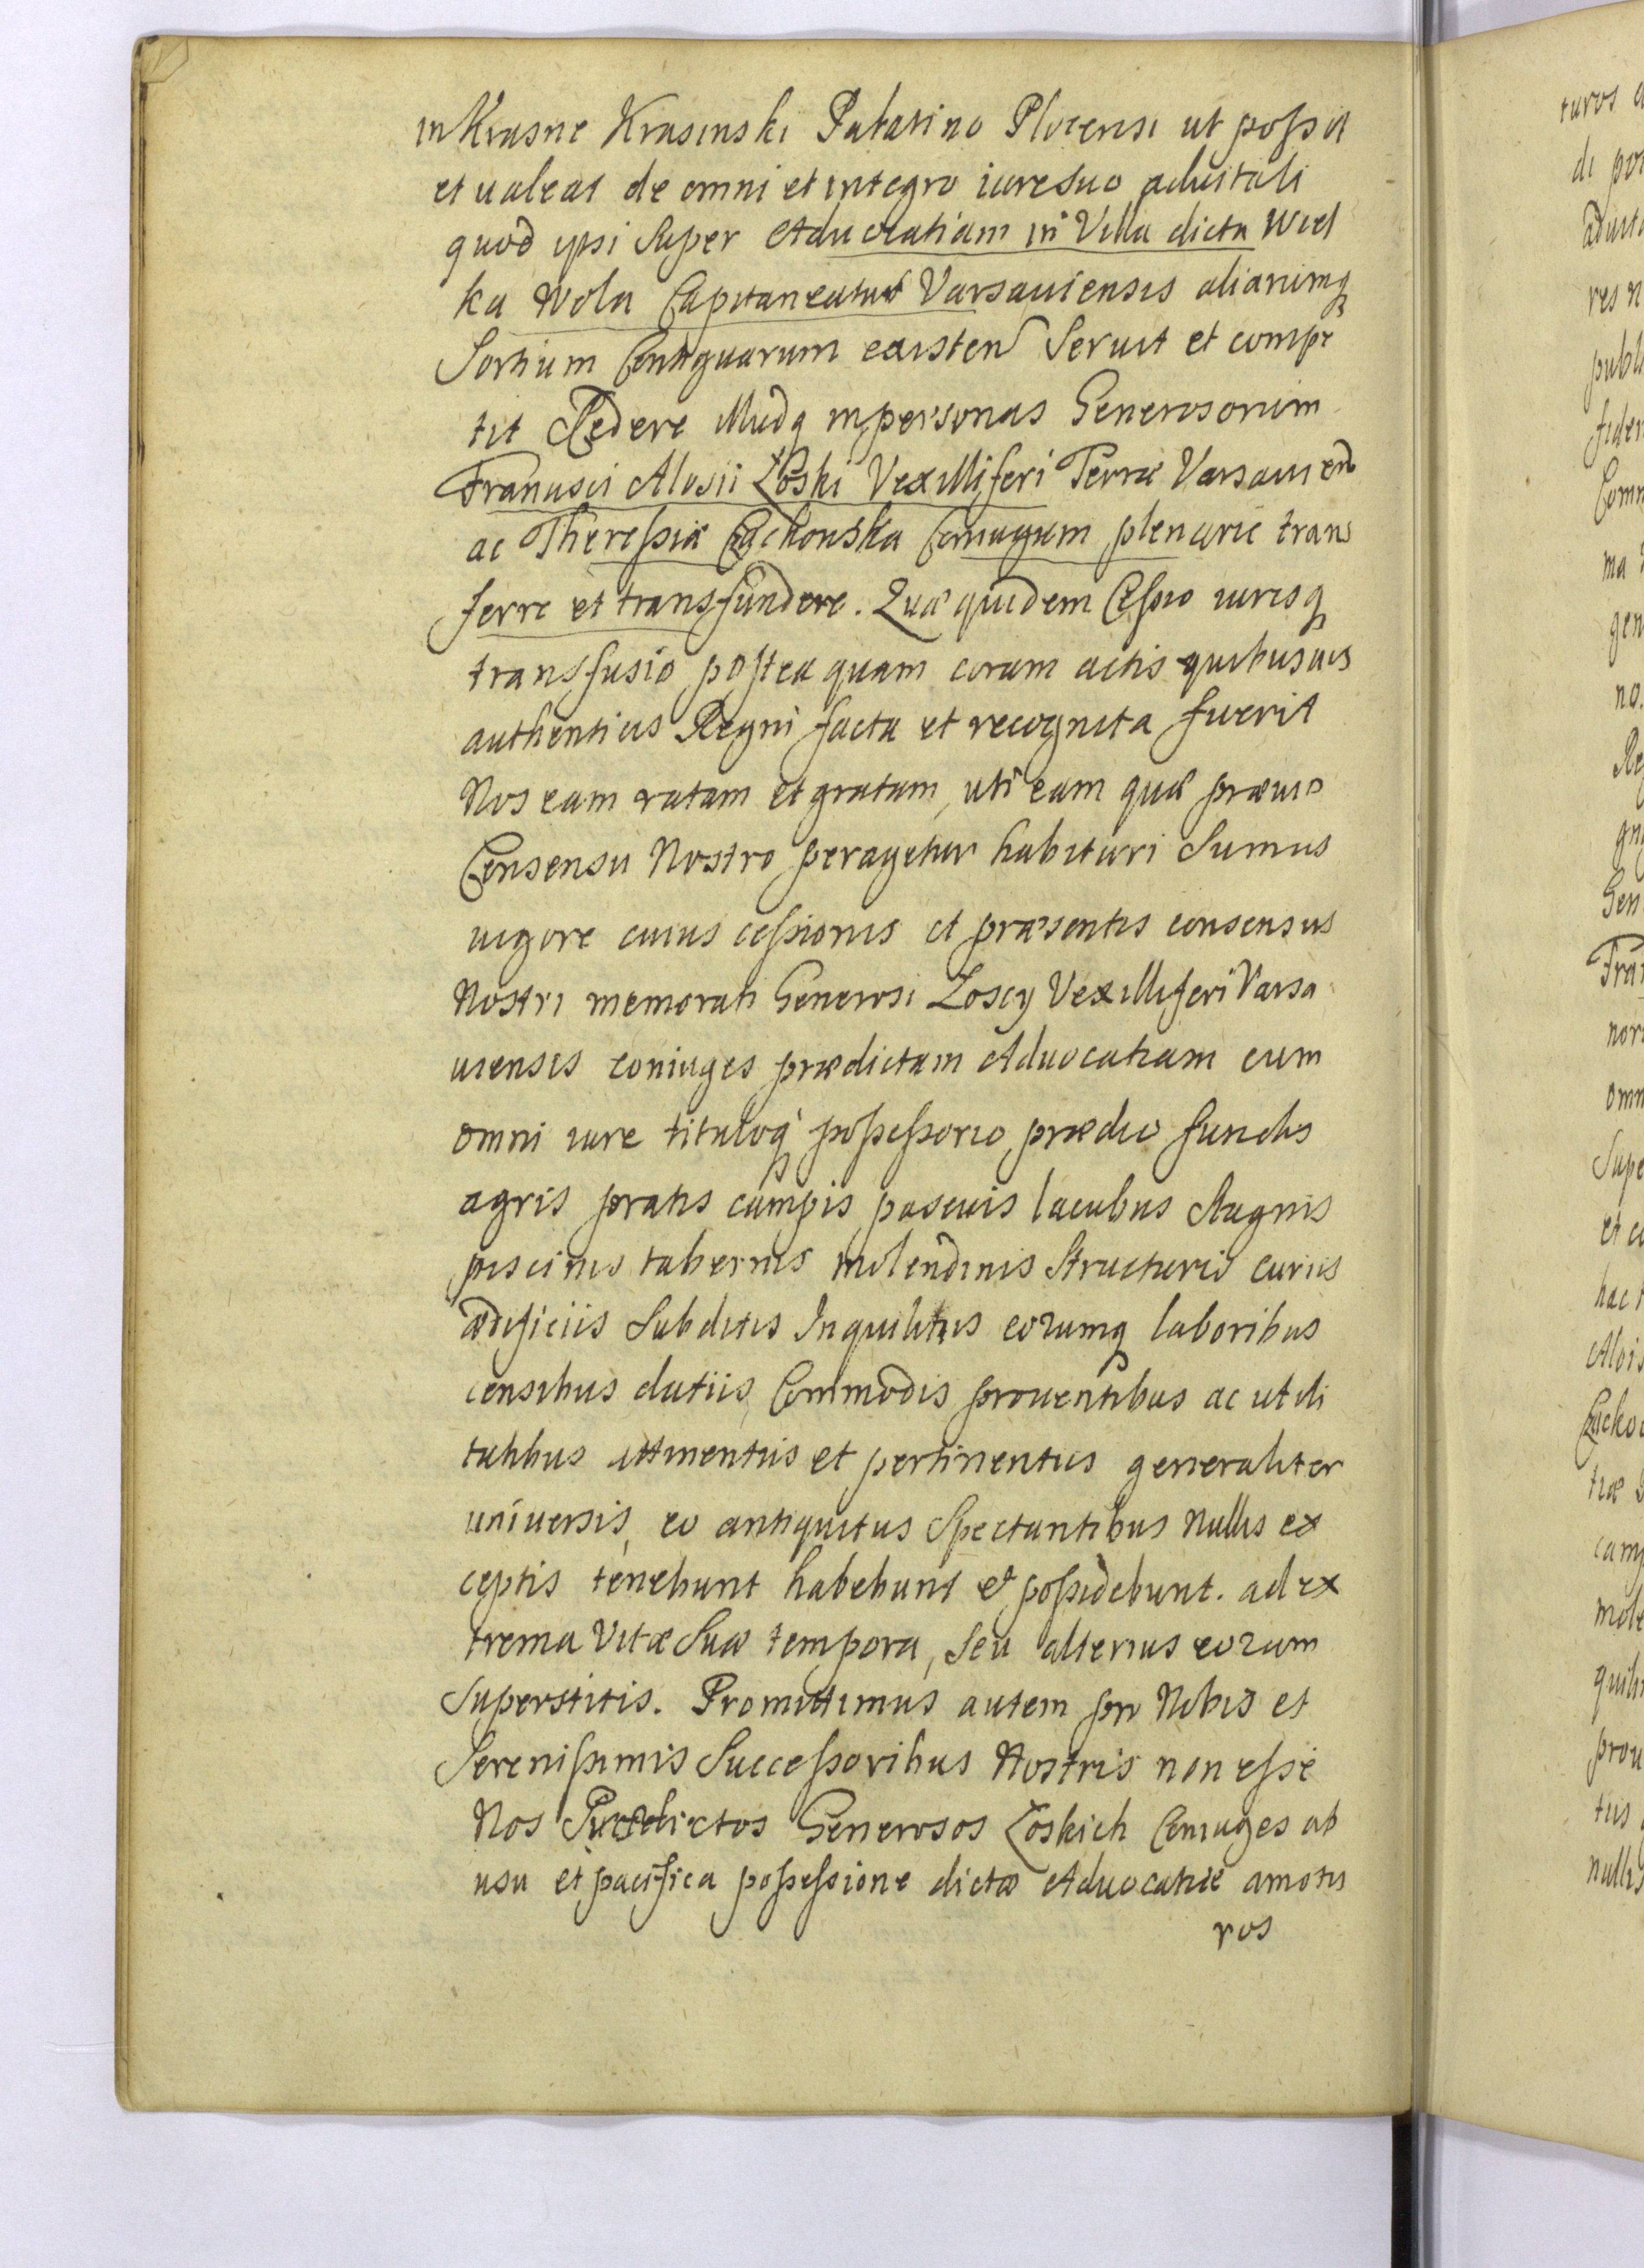 in Krasne Krasinski Palatino Plocensi ut possit
et ualeat de omni et integro iure suo aduitali
quod ipsi super Aduocatiam in Villa dicta Wiel
ka Wola Capitaneatus Varsauiensis aliarumq
Sortium Contiguarum existen Seruit et compe
tit Cedere illudq in personas Generosorum
Francisci Aloisii Łoski Vexilliferi Terræ Varsauien
ac Theressiæ Cackouska Coniugum plenarie trans
ferre et transfundere. Quæ quidem Cessio iurisq
transfusio postea quam coram actis quibusuis
authenticis Regni facta et recognita fuerit
Nos eam ratam et gratam, uti eam quæ præuio
Consensu Nostro peragetur habituri Sumus
uigore cuius cessionis et præsentis consensus
Nostri memorati Generosi Łoscy Vexilliferi Varsa
uiensis coniuges prædictam Aduocatiam cum
omni iure tituloq possessorio prædio fundis
agris pratis campis pascuis lacubus Stagnis
piscinis tabernis molendinis Structuris curiis
ædificiis Subditis Inquilinis eorumq laboribus
censibus datiis, Commodis prouentibus ac utili
tatibus attinentiis et pertinentiis generaliter
uniuersis, eo antiquitus Spectantibus Nullis ex
ceptis tenebunt habebunt et possidebunt. ad ex
trema Vitæ Suæ tempora, seu alterius eorum
Superstitis. Promittimus autem pro Nobis et
Serenissimis Successoribus Nostris non esse
Nos Prædictos Generosos Łoskich Coniuges ab
usu et pacifica possessione dictæ Aduocatiæ amotu
ros